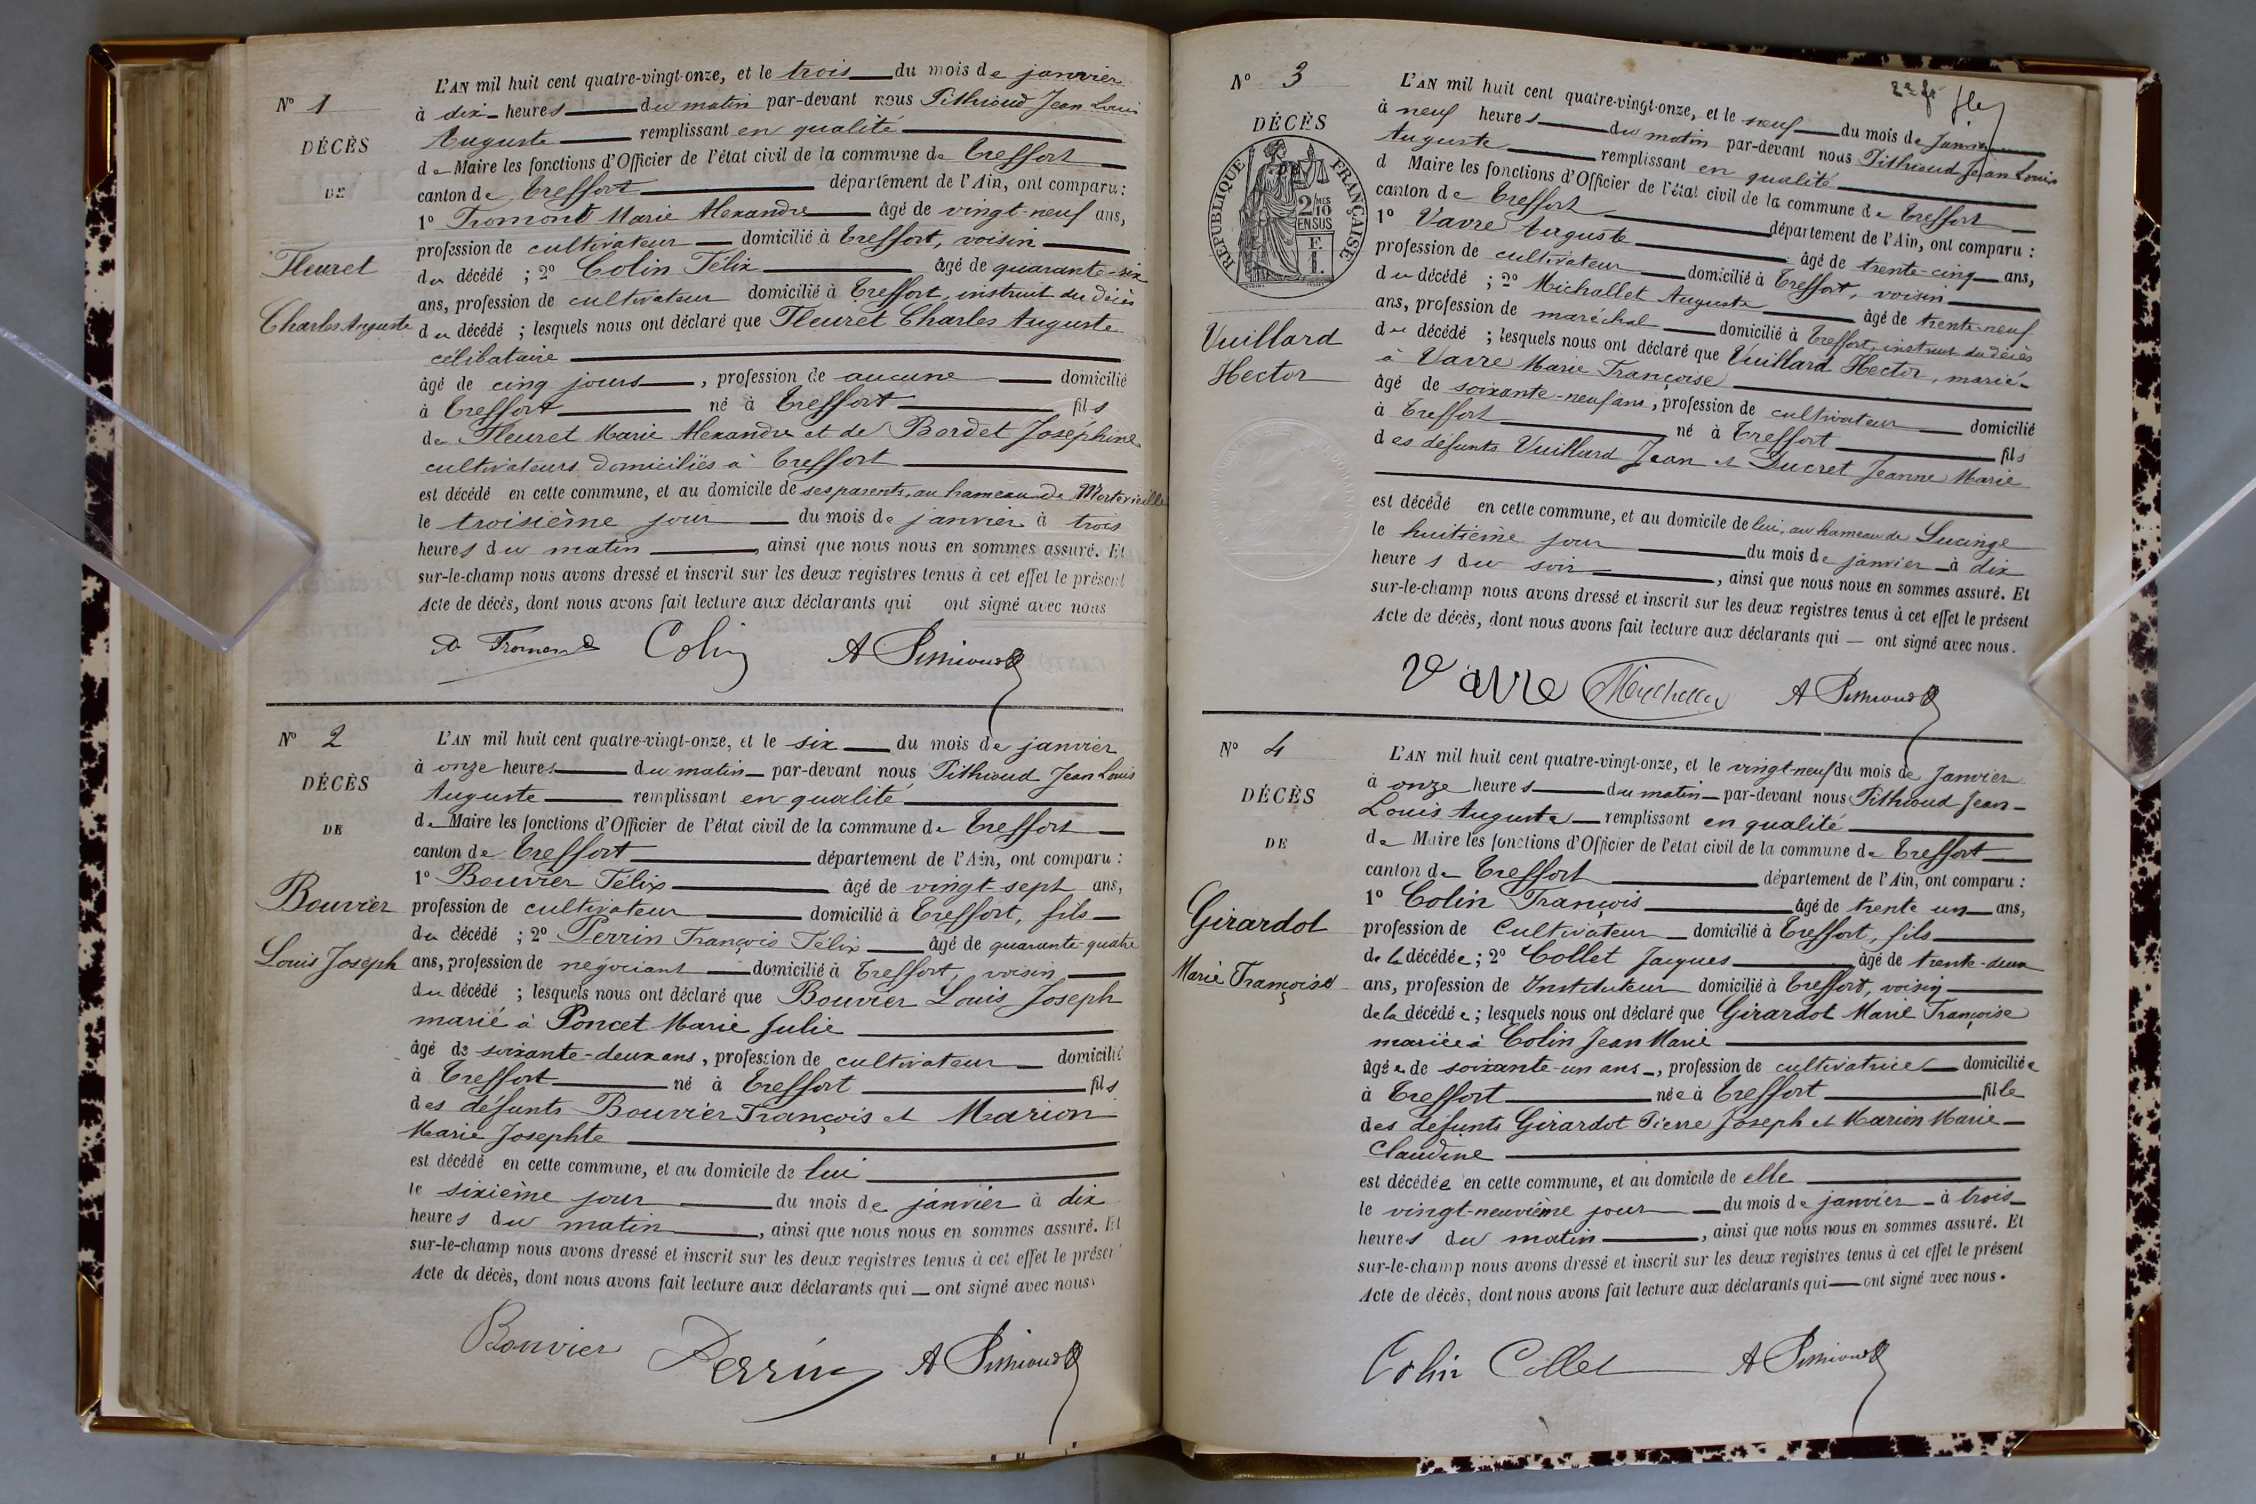 N° 1
DÉCÈS
DE
Fleuret
Charles Auguste
L'AN mil huit cent quatre-vingt-onze, et le trois du mois de janvier
à dix heures du matin par-devant nous Pithioud Jean Louis
Auguste remplissant en qualité
de Maire les fonctions d'Officier de l'état civil de la commune de Treffort
canton de Treffort département de l'Ain, ont comparu :
1° Fromont Marie Alexandre âgé de vingt-neuf ans,
profession de cultivateur domicilié à Treffort, voisin
du décédé ; 2° Colin Félix âgé de quarante-six
ans, profession de cultivateur domicilié à Treffort, instruit du décès
du décédé ; lesquels nous ont déclaré que Fleuret Charles Auguste
célibataire
âgé de cinq jours, profession de aucune domicilié
à Treffort né à Treffort fils
de Fleuret Marie Alexandre et de Bordet Joséphine
cultivateurs domiciliés à Treffort
est décédé en cette commune, et au domicile de ses parents, au hameau de Mortevieille
le troisième jour du mois de janvier à trois
heures du matin, ainsi que nous nous en sommes assuré. Et
sur-le-champ nous avons dressé et inscrit sur les deux registres tenus à cet effet le présent
Acte de décès, dont nous avons fait lecture aux déclarants qui ont signé avec nous
Colin A Pithioud
N° 2
DÉCÈS
DE
Bouvier
Louis Joseph
L'AN mil huit cent quatre-vingt-onze, et le six du mois de janvier
à onze heures du matin par-devant nous Pithioud Jean Louis
Auguste remplissant en qualité
de Maire les fonctions d'Officier de l'état civil de la commune de Treffort
canton de Treffort département de l'Ain, ont comparu :
1° Bouvier Félix âgé de vingt-sept ans,
profession de cultivateur domicilié à Treffort, fils
du décédé ; 2° Perrin François Félix âgé de quarante-quatre
ans, profession de négociant domicilié à Treffort, voisin
du décédé ; lesquels nous ont déclaré que Bouvier Louis Joseph
marié à Poncet Marie Julie
âgé de soixante-deux ans, profession de cultivateur domicilié
à Treffort né à Treffort fils
des défunts Bouvier François et Marion
Marie Josephte
est décédé en cette commune, et au domicile de lui
le sixième jour du mois de janvier à dix
heures du matin, ainsi que nous nous en sommes assuré. Et
sur-le-champ nous avons dressé et inscrit sur les deux registres tenus à cet effet le présent
Acte de décès, dont nous avons fait lecture aux déclarants qui ont signé avec nous.
Bouvier Perrin A Pithioud
N° 3
DÉCÈS
RÉPUBLIQUE FRANÇAISE
2/10 MES EN SUS
Vuillard
Hector
L'AN mil huit cent quatre-vingt-onze, et le neuf du mois de janvier
à neuf heures du matin par-devant nous Pithioud Jean Louis
Auguste remplissant en qualité
d Maire les fonctions d'Officier de l'état civil de la commune de Treffort
canton de Treffort département de l'Ain, ont comparu :
1° Vavre Auguste âgé de trente-cinq ans,
profession de cultivateur domicilié à Treffort, voisin
du décédé ; 2° Michallet Auguste âgé de trente-neuf
ans, profession de maréchal domicilié à Treffort, instruit du décès
du décédé ; lesquels nous ont déclaré que Vuillard Hector, marié
à Vavre Marie Françoise
âgé de soixante-neuf ans, profession de cultivateur domicilié
à Treffort né à Treffort fils
des défunts Vuillard Jean et Ducret Jeanne Marie
est décédé en cette commune, et au domicile de lui, au hameau de Lucinge
le huitième jour du mois de janvier à dix
heures du soir, ainsi que nous nous en sommes assuré. Et
sur-le-champ nous avons dressé et inscrit sur les deux registres tenus à cet effet le présent
Acte de décès, dont nous avons fait lecture aux déclarants qui ont signé avec nous.
Vavre A Pithioud
N° 4
DÉCÈS
DE
Girardot
Marie Françoise
L'AN mil huit cent quatre-vingt-onze, et le vingt-neuf du mois de Janvier
à onze heures du matin par-devant nous Pithioud Jean-
Louis Auguste remplissant en qualité
de Maire les fonctions d'Officier de l'état civil de la commune de Treffort
canton de Treffort département de l'Ain, ont comparu :
1° Colin François âgé de trente un ans,
profession de Cultivateur domicilié à Treffort, fils
de la décédée ; 2° Collet Jacques âgé de trente-deux
ans, profession de Instituteur domicilié à Treffort, voisin
de la décédée ; lesquels nous ont déclaré que Girardot Marie Françoise
mariée à Colin Jean Marie
âgée de soixante-un ans, profession de cultivatrice domiciliée
à Treffort née à Treffort fille
des défunts Girardot Pierre Joseph et Marion Marie-
Claudine
est décédée en cette commune, et au domicile de elle
le vingt-neuvième jour du mois de janvier à trois
heures du matin, ainsi que nous nous en sommes assuré. Et
sur-le-champ nous avons dressé et inscrit sur les deux registres tenus à cet effet le présent
Acte de décès, dont nous avons fait lecture aux déclarants qui ont signé avec nous.
Colin Collet A Pithioud